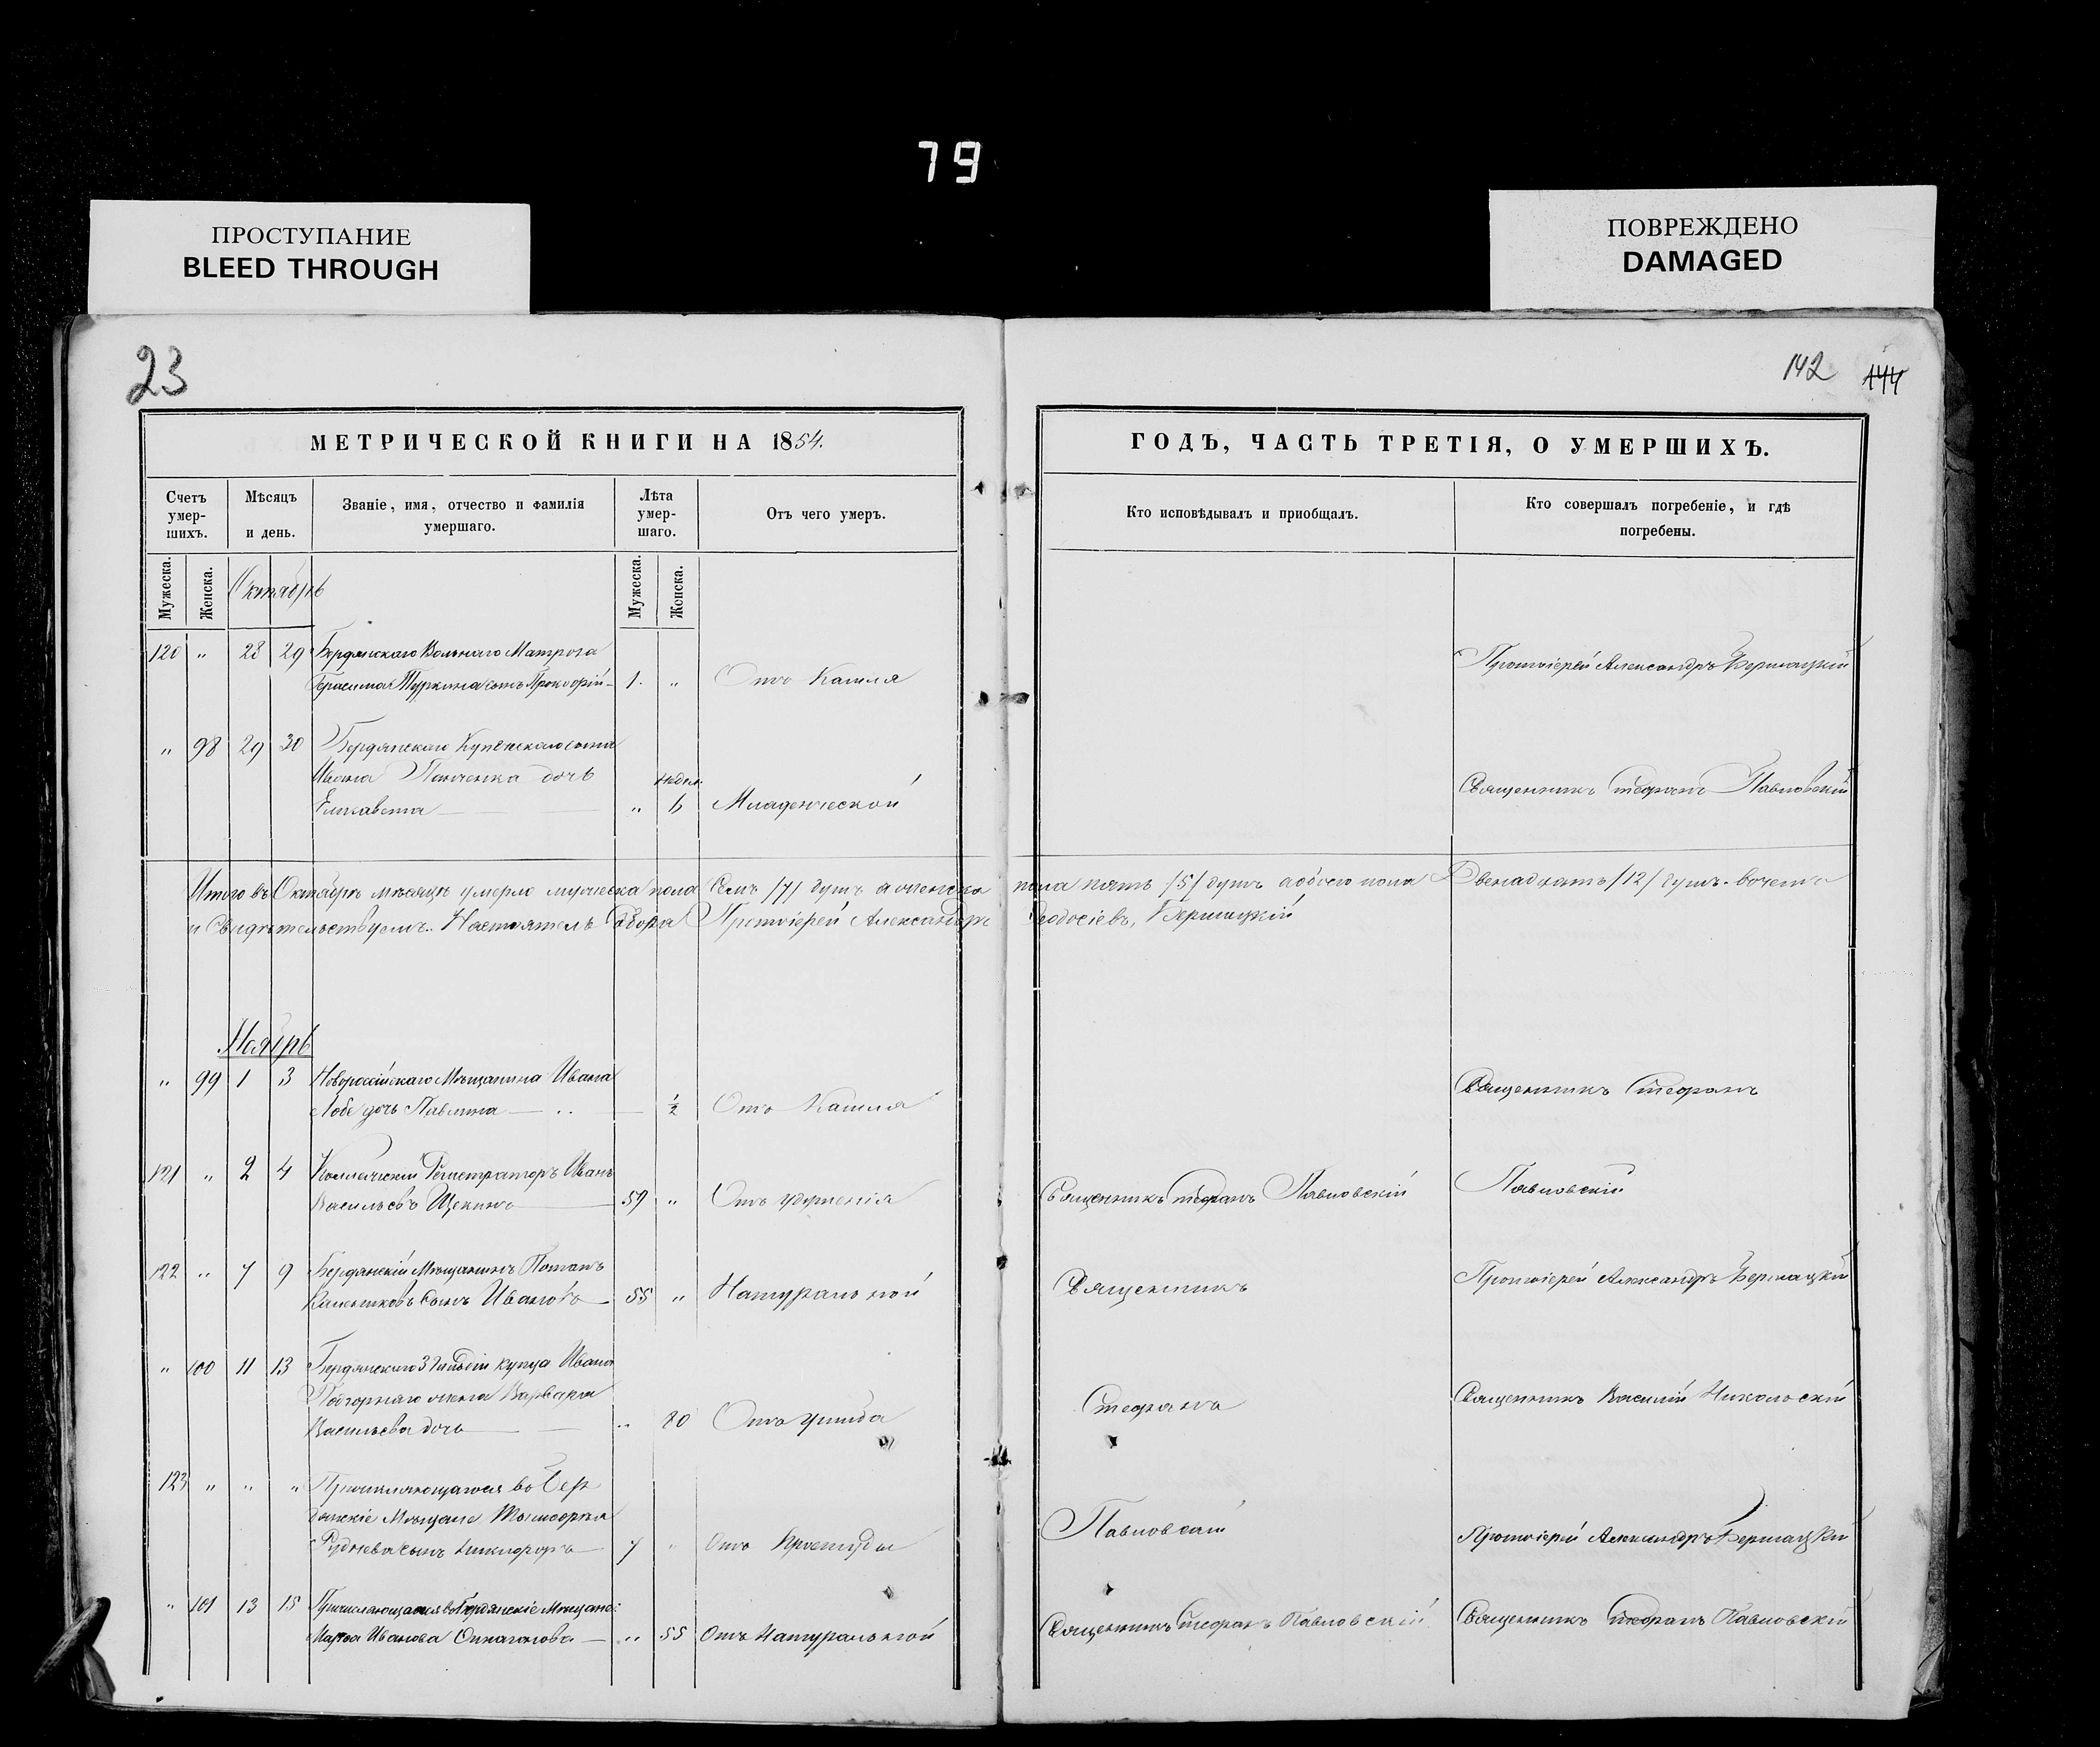 79
ПРОСТУПАНИЕ
BLEED THROUGH
ПОВРЕЖДЕНО
DAMAGED
23
142 144
МЕТРИЧЕСКОЙ КНИГИ НА 1854.
ГОДЪ, ЧАСТЬ ТРЕТІЯ, О УМЕРШИХЪ.
Счетъ умер-шихъ.
Мѣсяцъ и день.
Званіе, имя, отчество и фамилія умершаго.
Лѣта умер-шаго.
Отъ чего умеръ.
Кто исповѣдывалъ и пріобщалъ.
Кто совершалъ погребеніе, и гдѣ погребены.
Мужеска.
Женска.
Октябрь
Мужеска.
Женска.
120 " 28 29 Бердянскаго Вольнаго Матроза
Герасима Туркина сынъ Прокофій 1. " Отъ Кашля
Протоіерей Александръ Бершацкій
" 98 29 30 Бердянскаго Купеческаго сына
Ивана Панченка дочь
Елисавета " недѣл. 6 Младенческой
Священникъ Стефанъ Павловскій
Итого въ Октябрѣ мѣсяцѣ умерло мужеска пола Семь /7/ душъ а женска пола пять /5/ душъ а обоего пола Двенадцать /12/ душъ. въ чемъ
и Свидѣтельствуемъ. Настоятель Собора Протоіерей Александръ Феодосіевъ, Бершацкій
Ноябрь
" 99 1 3 Новороссійскаго Мѣщанина Ивана
дочь Павлина ½ Отъ Кашля
Священникъ Стефанъ
121 " 2 4 Коллежскій Регистраторъ Иванъ
Васильевъ Щекинъ 59 " Отъ удушенія
Священникъ Стефанъ Павловскій
Павловскій
122 " 7 9 Бердянскій Мѣщанинъ Потапъ
сынъ Ивановъ 55 " Натуральной
Священникъ
Протоіерей Александръ Бершацкій
" 100 11 13 Бердянскаго 3 Гильдіи купца Ивана
жена Варвара
Васильева дочь " 80 Отъ ушиба
Стефанъ
Священникъ Василій Никольскій
123 " " " Причисляющагося въ Бер
дянскіе Мѣщане
сынъ Никифоръ 7 " Отъ Простуды
Павловскій
Протоіерей Александръ Бершацкій
" 101 13 15 Причисляющаяся въ Бердянскіе Мѣщане:
Марфа Иванова " 55 Отъ Натуральной
Священникъ Стефанъ Павловскій
Священникъ Стефанъ Павловскій